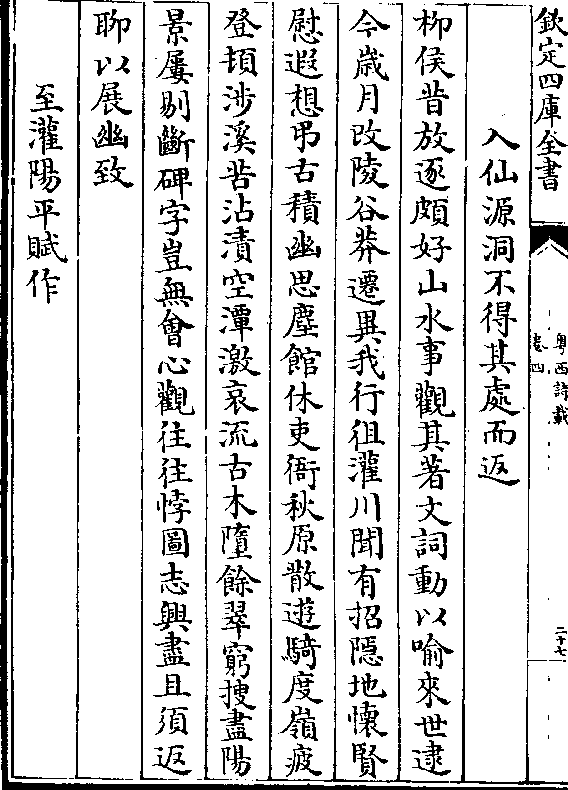 欽定四庫全書
粤西詩載
卷四
二十七
入仙源洞不得其處而返
柳侯昔放逐頗好山水事觀其著文詞動以喻來世逮
今歳月改陵谷莽遷異我行徂灌川聞有招隠地懐賢
慰遐想弔古積幽思塵館休吏衙秋原散遊騎度嶺疲
登頓涉溪苦沾漬空潭激哀流古木墮餘翠窮搜盡陽
景屢剔斷碑字豈無會心觀往往悖圖志興盡且須返
聊以展幽致
至灌陽平賦作